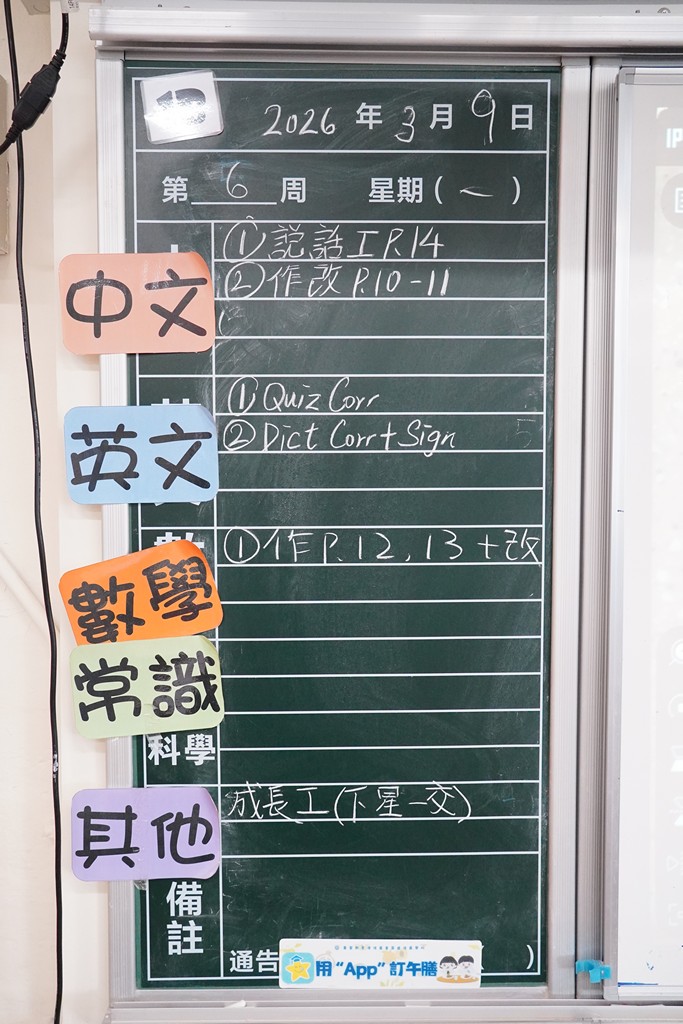 2026 年 3 月 9 日
第 6 周 星期(一)
中文
①説話工 P.14
②作改 P.10-11
英文
①Quiz Corr
②Dict Corr+Sign
數學
①作 P.12,13+改
常識
科學
其他
成長工(下星一交)
備註
通告
用“App”訂午膳
)
IP